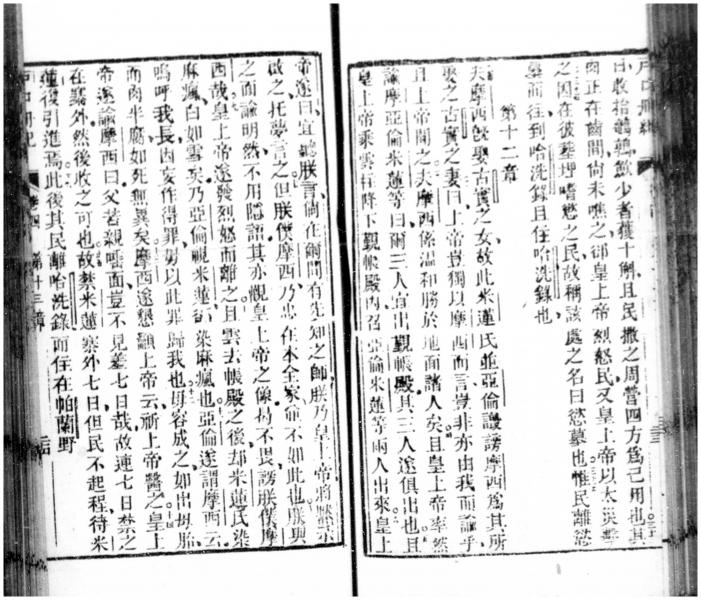 日收拾鵪鶉歛少者獲十斛且民撒之周營四方為己用也其
肉正在齒間尚未嚼之卻皇上帝烈怒民又皇上帝以太災擊
之因在彼葬埋嗜慾之民故稱該處之名曰慾墓也惟民離慾
墓而往到哈洗錄且住哈洗錄也
第十二章
夫摩西旣娶古實之女故此米蓮氏並亞倫譭謗摩西為其所
娶之古實之妻曰上帝豈獨以摩西而言豈非亦由我而諭乎
且上帝聞之夫摩西係溫和勝於地面諸人矣且皇上帝率然
諭摩亞倫米蓮等曰爾三人宜出覲帳殿其三人遂俱出也且
皇上帝乘雲柱降下覲帳殿內召亞倫米蓮等兩人出來皇上
帝遂曰宜聽朕言倘在爾間有先知之師朕乃皇上帝將默示
啟之托夢言之但朕僕摩西乃忠在本全家不如此也朕與
之面諭明然不用隱語其亦觀皇上帝之像何不畏謗朕僕摩
西哉皇上帝遂發烈怒而離之且雲去帳殿之後却米蓮氏染
麻瘋白如雪矣乃亞倫視米蓮染麻瘋也亞倫遂謂摩西云
嗚呼我長因妄作得罪勿以此罪歸我也毋容成之如出母胎
而肉半腐如死無異矣摩西遂懇籲上帝云祈上帝醫之皇上
帝遂諭摩西曰父若親唾面豈不見羞七日哉故連七日禁之
在寨外然後收之可也故禁米蓮寨外七日但民不起程待米
蓮復引進焉此後其民離哈洗錄而住在帕蘭野
戶口冊紀 卷四 第十三章